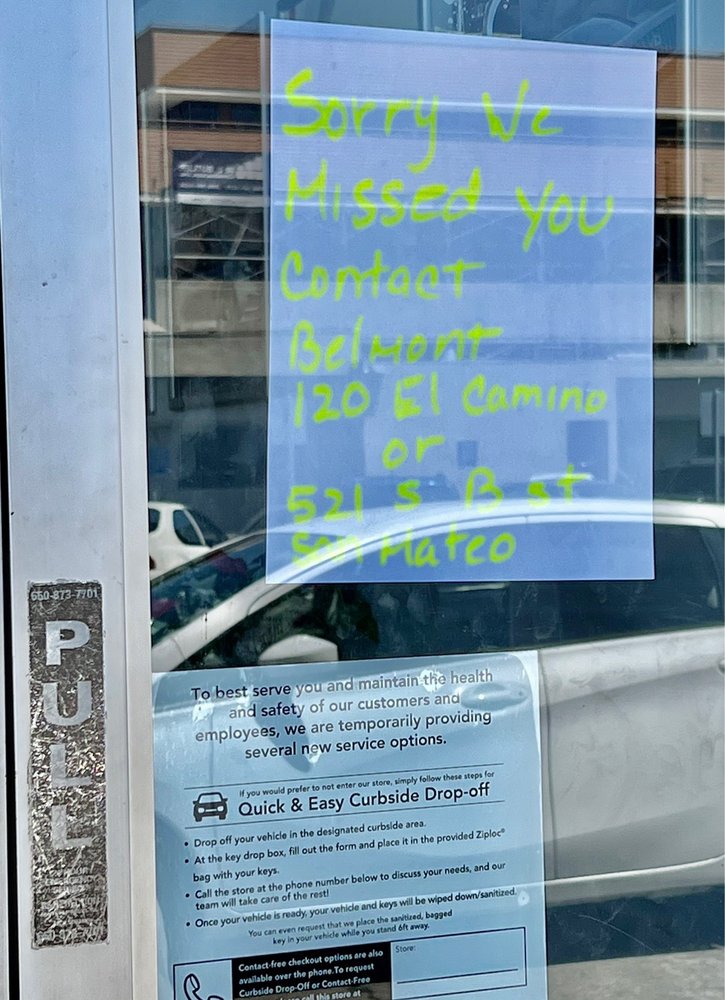 Sorry We
Missed You
Contact
Belmont
120 El Camino
or
521 S B st
San Mateo
650-873-7701
PULL
To best serve you and maintain the health
and safety of our customers and
employees, we are temporarily providing
several new service options.
If you would prefer to not enter our store, simply follow these steps for
Quick & Easy Curbside Drop-off
• Drop off your vehicle in the designated curbside area.
• At the key drop box, fill out the form and place it in the provided Ziploc®
bag with your keys.
• Call the store at the phone number below to discuss your needs, and our
team will take care of the rest!
• Once your vehicle is ready, your vehicle and keys will be wiped down/sanitized.
You can even request that we place the sanitized, bagged
key in your vehicle while you stand 6ft away.
Contact-free checkout options are also
available over the phone. To request
Curbside Drop-Off or Contact-Free
call this store at
Store: